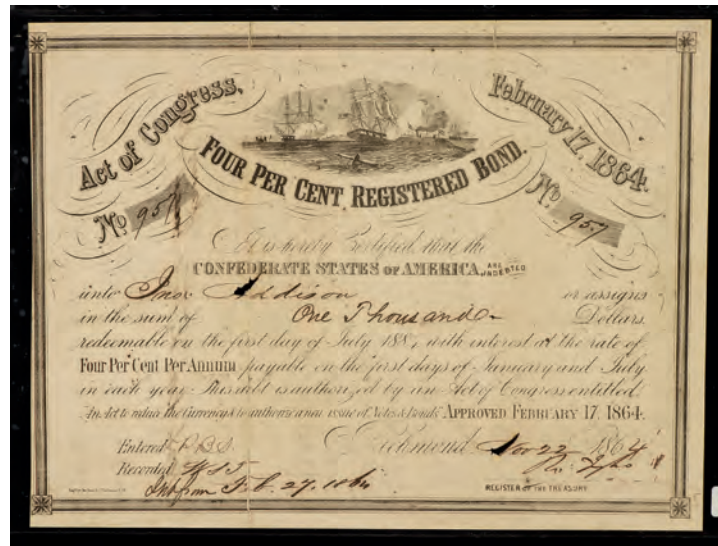 Act of Congress,
February 17, 1864.
FOUR PER CENT REGISTERED BOND.
No 957
No 957
It is hereby Certified that the
CONFEDERATE STATES OF AMERICA, ARE INDEBTED
unto Jno: Addison or assigns
in the sum of One Thousand Dollars.
redeemable on the first day of July 188, with interest at the rate of
Four Per Cent Per Annum payable on the first days of January and July
in each year. This debt is authorized by an Act of Congress entitled
An Act to reduce the Currency & to authorize a new issue of Notes & Bonds APPROVED FEBRUARY 17. 1864.
Entered
Richmond Nov 22 1864
Recorded
Int from Feb. 27. 1864
REGISTER OF THE TREASURY